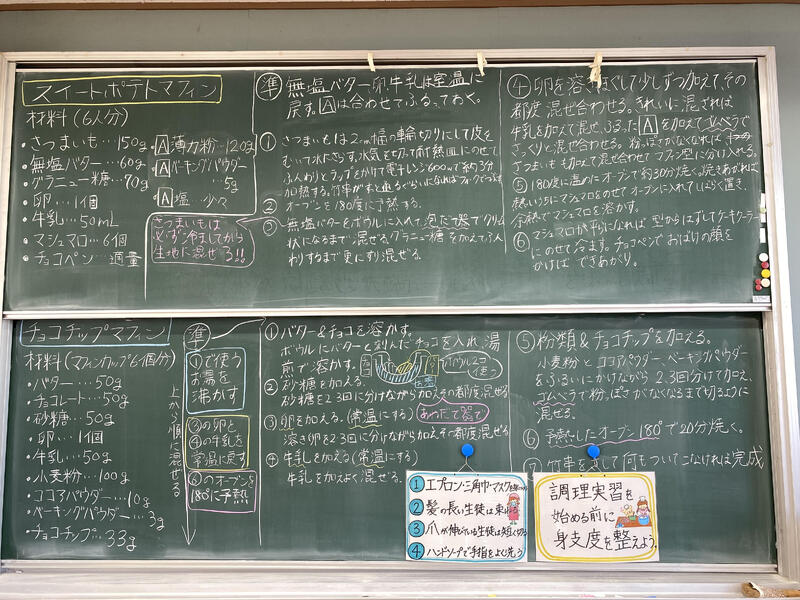 スイートポテトマフィン
材料(6人分)
・さつまいも…150g
・無塩バター…60g
・グラニュー糖…70g
・卵…1個
・牛乳…50mL
・マシュマロ…6個
・チョコペン…適量
A 薄力粉…120g
A ベーキングパウダー
…5g
A 塩…少々
さつまいもは
必ず冷ましてから
生地に混ぜる!!
準 無塩バター、卵、牛乳は室温に
戻す。Aは合わせてふるっておく。
① さつまいもは2cm幅の輪切りにして皮を
むいて水にさらす。水気を切って耐熱皿にのせて
ふんわりとラップをかけて電子レンジ600wで約3分
加熱する。竹串がすっと通るぐらいになればフォークでつぶす
② オーブンを180度に予熱する。
③ 無塩バターをボウルに入れて泡だて器でクリーム
状になるまで混ぜる。グラニュー糖を加えてふん
わりするまで更にすり混ぜる。
④ 卵を溶きほぐして少しずつ加えて、その
都度混ぜ合わせる。きれいに混ざれば
牛乳を加えて混ぜ、ふるったAを加えてゴムベラで
さっくりと混ぜ合わせる。粉っぽさがなくなれば
さつまいもを加えて混ぜ合わせてマフィン型に分け入れる。
⑤ 180度に温めたオーブンで約30分焼く。焼きあがれば
熱いうちにマシュマロをのせてオーブンに入れてしばらく置き、
余熱でマシュマロを溶かす。
⑥ マシュマロが平らになれば型からはずしてケーキクーラー
にのせて冷ます。チョコペンでおばけの顔を
かけばできあがり。
チョコチップマフィン
材料(マフィンカップ6個分)
・バター…50g
・チョコレート…50g
・砂糖…50g
・卵…1個
・牛乳…50g
・小麦粉…100g
・ココアパウダー…10g
・ベーキングパウダー…3g
・チョコチップ…33g
上から順に混ぜる
準
①で使う
お湯を
沸かす
③の卵と
④の牛乳を
常温に戻す
⑥のオーブンを
180℃に予熱
① バター&チョコを溶かす。
ボウルにバターと刻んだチョコを入れ、湯
煎で溶かす。
ボウル2コ
使う
お湯
② 砂糖を加える。
砂糖を2.3回に分けながら加えその都度混ぜる
③ 卵を加える。(常温にする) あわだて器で
溶き卵を2.3回に分けながら加えその都度混ぜる
④ 牛乳を加える(常温にする)
牛乳を加えよく混ぜる。
⑤ 粉類&チョコチップを加える。
小麦粉とココアパウダー、ベーキングパウダー
をふるいにかけながら2.3回分けて加え、
ゴムベラで粉っぽさがなくなるまで切るように
混ぜる。
⑥ 予熱したオーブン180°で20分焼く。
竹串を刺して何もついてこなければ完成
① エプロン・三角巾・マスクを
② 髪の長い生徒は束ねる
③ 爪が伸びている生徒は短く切る
④ ハンドソープで手指をよく洗う
調理実習を
始める前に
身支度を整えよう。